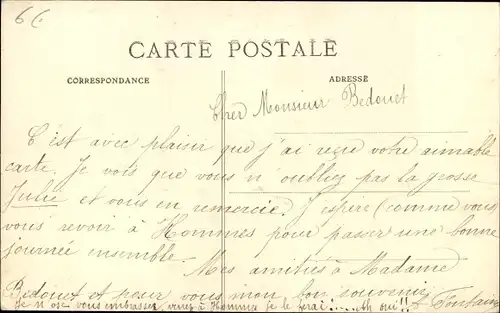 6
CARTE POSTALE
CORRESPONDANCE
ADRESSE
Cher Monsieur Bedouet
C'est avec plaisir que j'ai reçu votre aimable
carte. Je vois que vous n'oubliez pas la grosse
Julie et vous en remercie. J'espère (comme vous)
vous revoir à Hommes pour passer une bonne
journée ensemble.
Mes amitiés à Madame
Bedouet et pour vous mon bon souvenir.
Je n'ose vous embrasser, venez à Homme je le ferai.... Ah oui!!